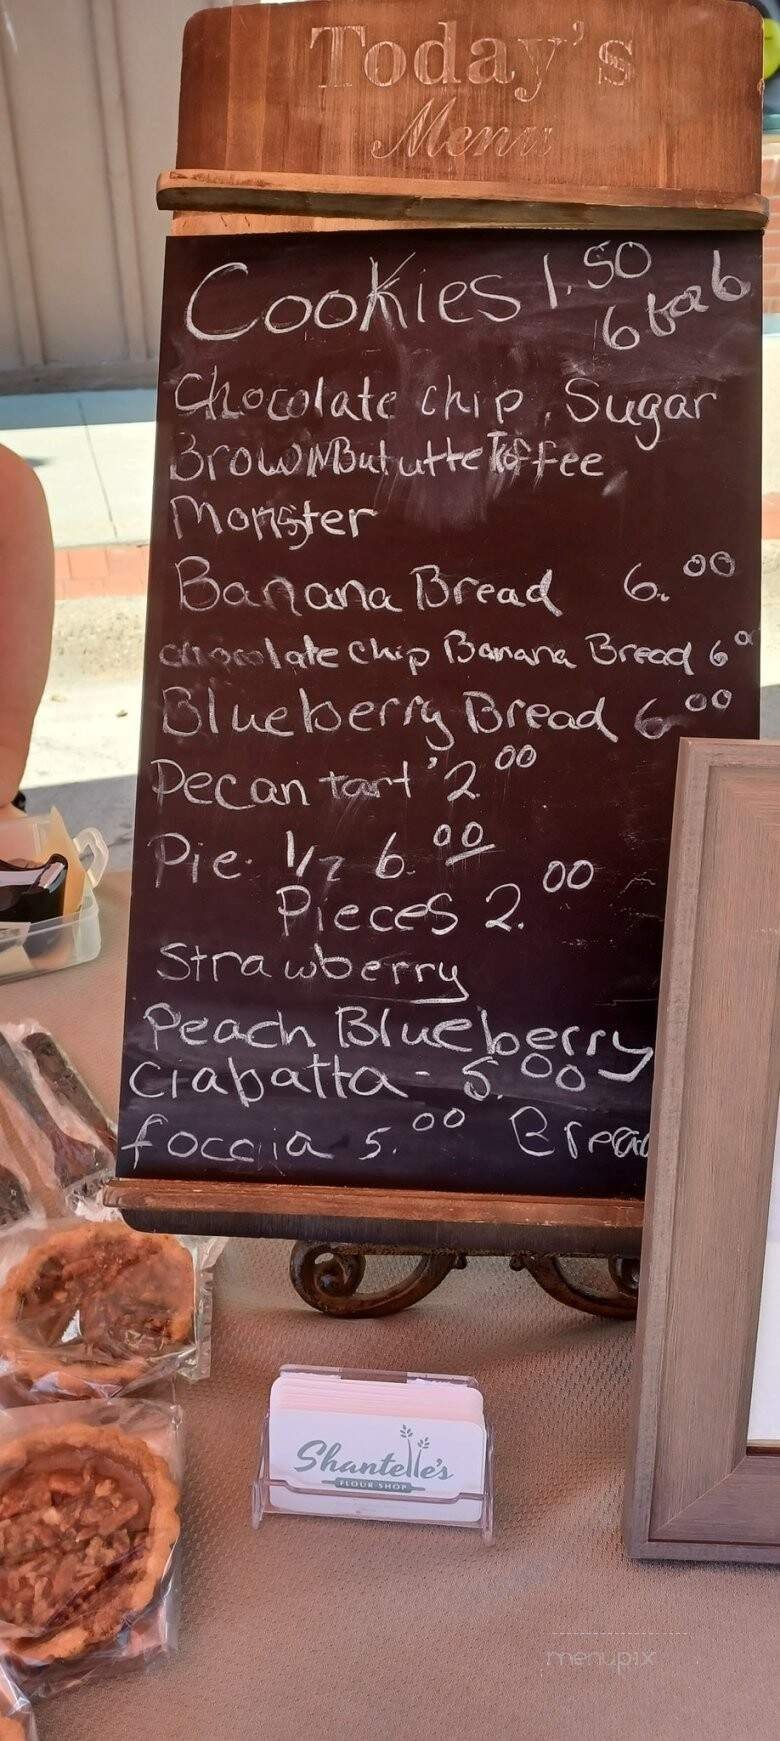 Today's
Menu
Cookies 1.50
6 for 6
Chocolate chip, Sugar
Brown Bututte Toffee
Monster
Banana Bread 6.00
chocolate chip Banana Bread 6 00
Blueberry Bread 6.00
Pecan tart 2.00
Pie 1/2 6.00
Pieces 2.00
Strawberry
Peach Blueberry
Ciabatta - 5.00
foccia 5.00 Bread
Shantelle's
FLOUR SHOP
menupix